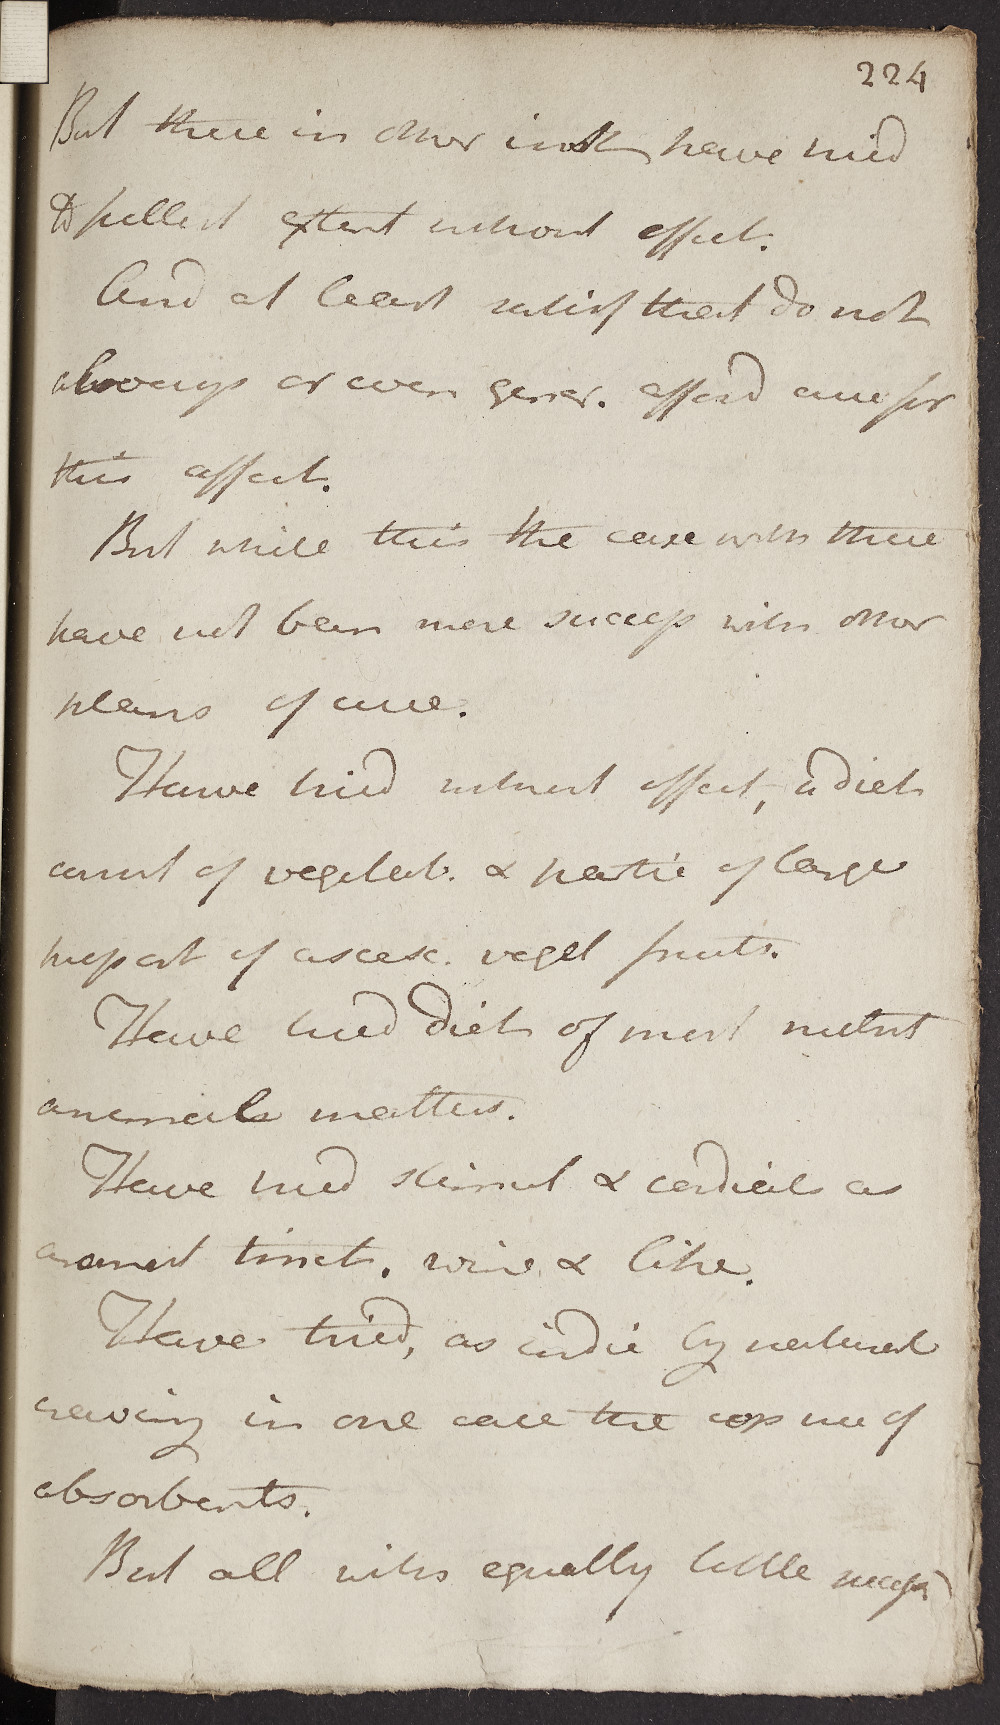 224
But these in other inst have tried
to fullest extent without effect.
And at least satisf that do not
always or even gener. afford cure for
this affect.
But while this the case with these
have not been more success with other
plans of cure.
Have tried without effect, a diet
const of vegetab. & partic of large
proport of ascesc. veget fruits.
Have tried diet of most nutrit
animale matters.
Have tried stimul & cordials as
aromat tinct. wine & like.
Have tried, as indic by natural
craving in one case the cop use of
absorbents.
But all with equally little success